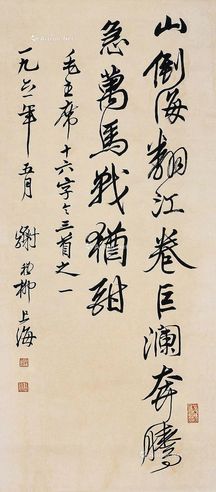 山倒海翻江卷巨澜奔騰
急萬馬戰猶酣
毛主席十六字令三首之一
一九六一年五月 謝稚柳上海